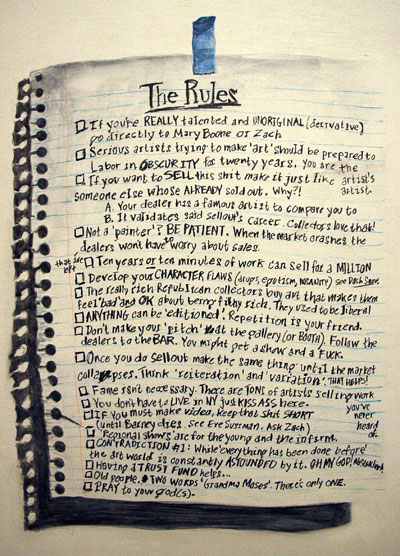 The Rules
If you're REALLY talented and UNORIGINAL (derivative)
go directly to Mary Boone or Zach
Serious artists trying to make 'art' should be prepared to
Labor in OBSCURITY for twenty years. You are the artist's artist.
If you want to SELL this shit make it just like
someone else whose ALREADY sold out. Why?!
A. Your dealer has a famous artist to compare you to
B. It validates said sellout's career. Collectors love that!
Not a 'painter'? BE PATIENT. When the market crashes the
dealers that are left won't have to worry about sales.
Ten years or ten minutes of work can sell for a MILLION
Develop your CHARACTER FLAWS (drugs, egotism, insanity) see Dash Snow
The really rich Republican collectors buy art that makes them
feel 'bad' and OK about being filthy rich. They used to be liberal
ANYTHING can be 'editioned'. Repetition is your friend.
Don't make your 'pitch' at the gallery (or BOOTH). Follow the
dealers to the BAR. You might get a show and a FUCK.
Once you do sellout make the same thing until the market
collapses. Think 'reiteration' and 'variation'. THAT HELPS!
Fame isn't necessary. There are TONS of artists selling work you've never heard of.
You don't have to LIVE in NY just KISS ASS here.
IF You must make video, keep that shit SHORT
(until Barney dies. See Eve Sussman. Ask Zach)
'Regional shows' are for the young and the infirm.
CONTRADICTION #1: While everything has been done before
the art world is constantly ASTOUNDED by it. OH MY GOD!
Having a TRUST FUND helps...
Old people. TWO WORDS 'Grandma Moses'. There's only ONE.
PRAY to your god(s).